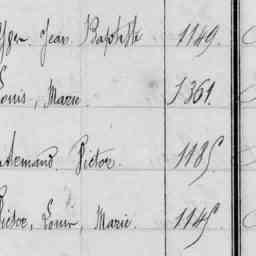 Jean Baptiste 1149.
Louis, Marie. 1361.
Armand. Victor. 1185.
Victor, Louis, Marie. 1145.